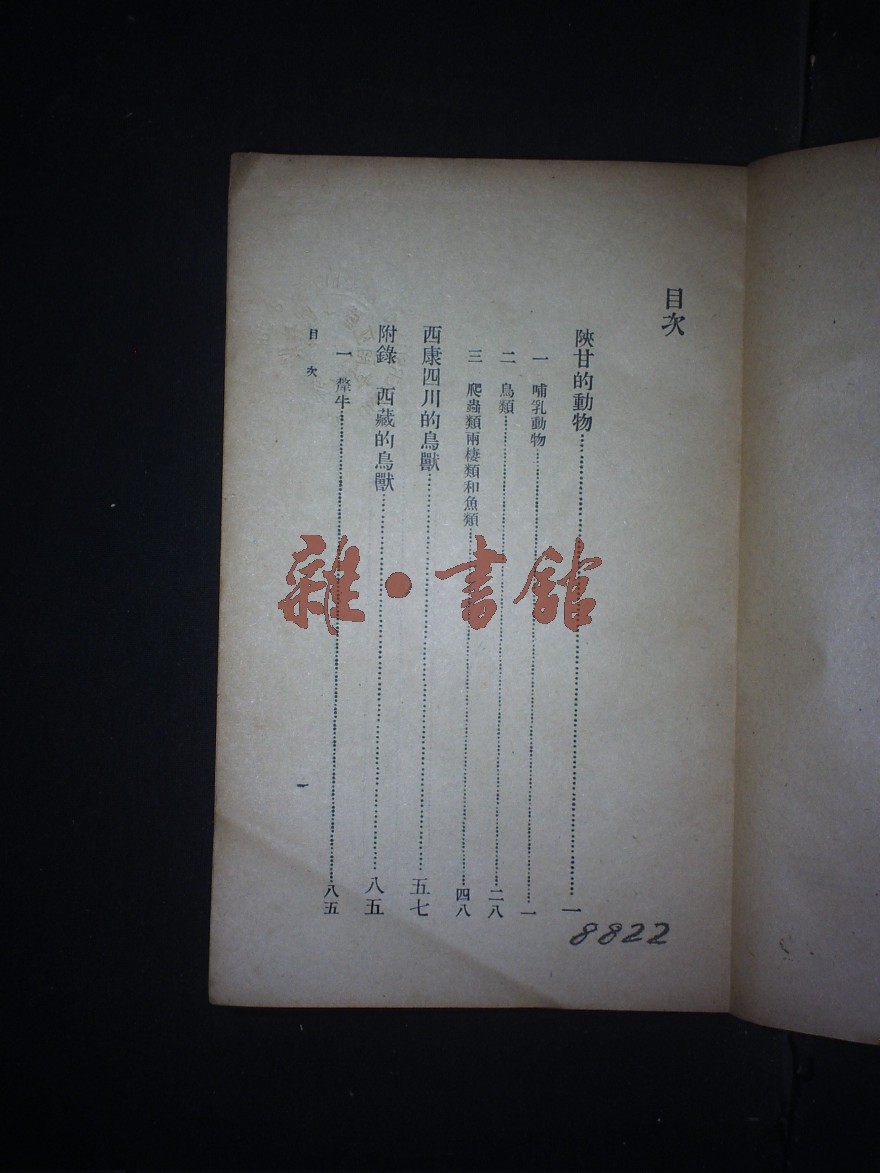 目次
陝甘的動物……一
一 哺乳動物……一
二 鳥類……二八
三 爬蟲類兩棲類和魚類……四八
西康四川的鳥獸……五七
附錄 西藏的鳥獸……八五
一 犛牛……八五
目次
一
8822
雜·書館